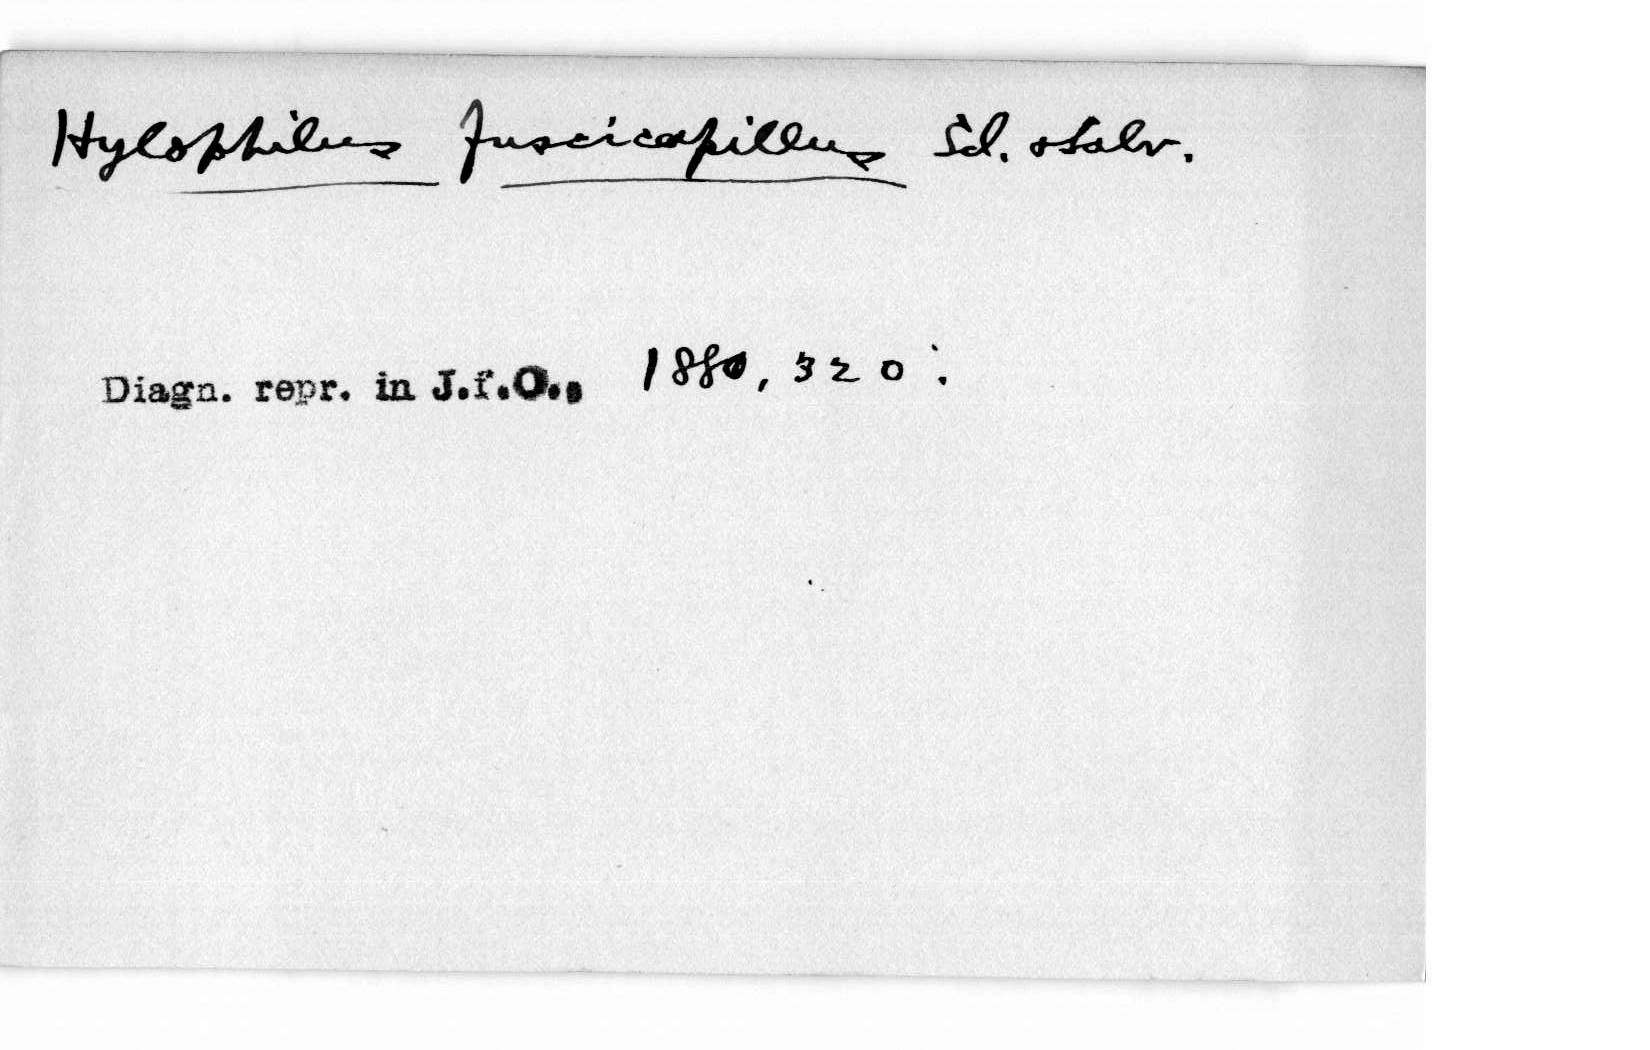 Hylophilus fuscicapillus Scl. & Salv.
Diagn. repr. in J.f.O., 1880, 320.